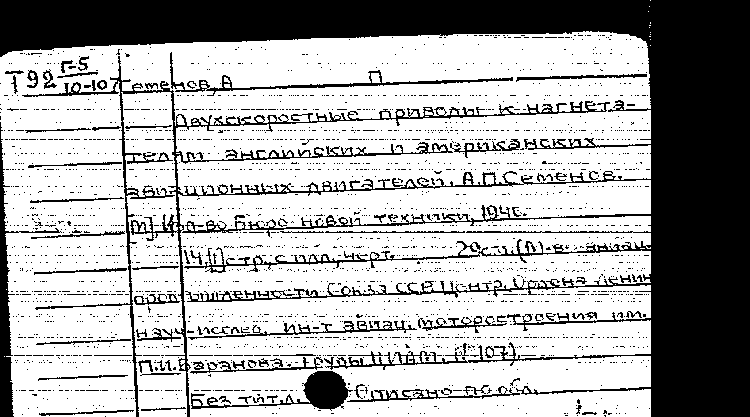 Т92 Г-5/10-107 Семенов, А П
Двухскоростные приводы к нагнета-
телям английских и американских
авиационных двигателей. А.П.Семенов.
[М], Изд-во Бюро новой техники, 1946.
14,[1] стр., с илл., черт. 29см. (М-во авиац.
промышленности Союза ССР. Центр. Ордена Ленин
науч.-исслед. ин-т авиац. моторостроения им.
П.И.Баранова. Труды ЦИАМ. № 107).
Без тит.л. Описано по обл.